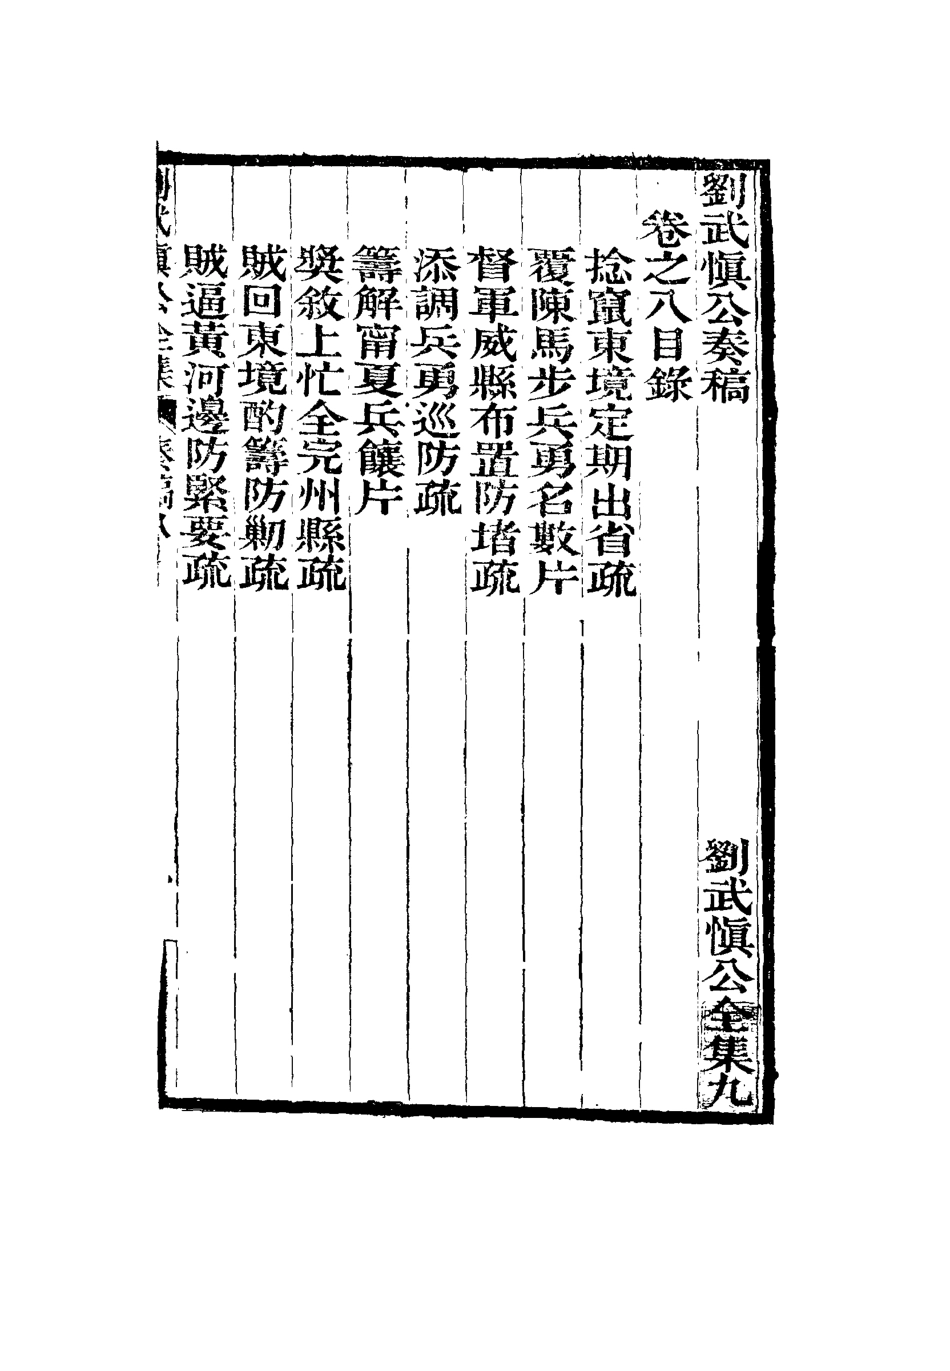 劉武愼公奏稿　劉武愼公全集九
卷之八目錄
捻竄東境定期出省疏
覆陳馬步兵勇名數片
督軍威縣布置防堵疏
添調兵勇巡防疏
籌解甯夏兵饟片
獎敘上忙全完州縣疏
賊回東境酌籌防勦疏
賊逼黃河邊防緊要疏